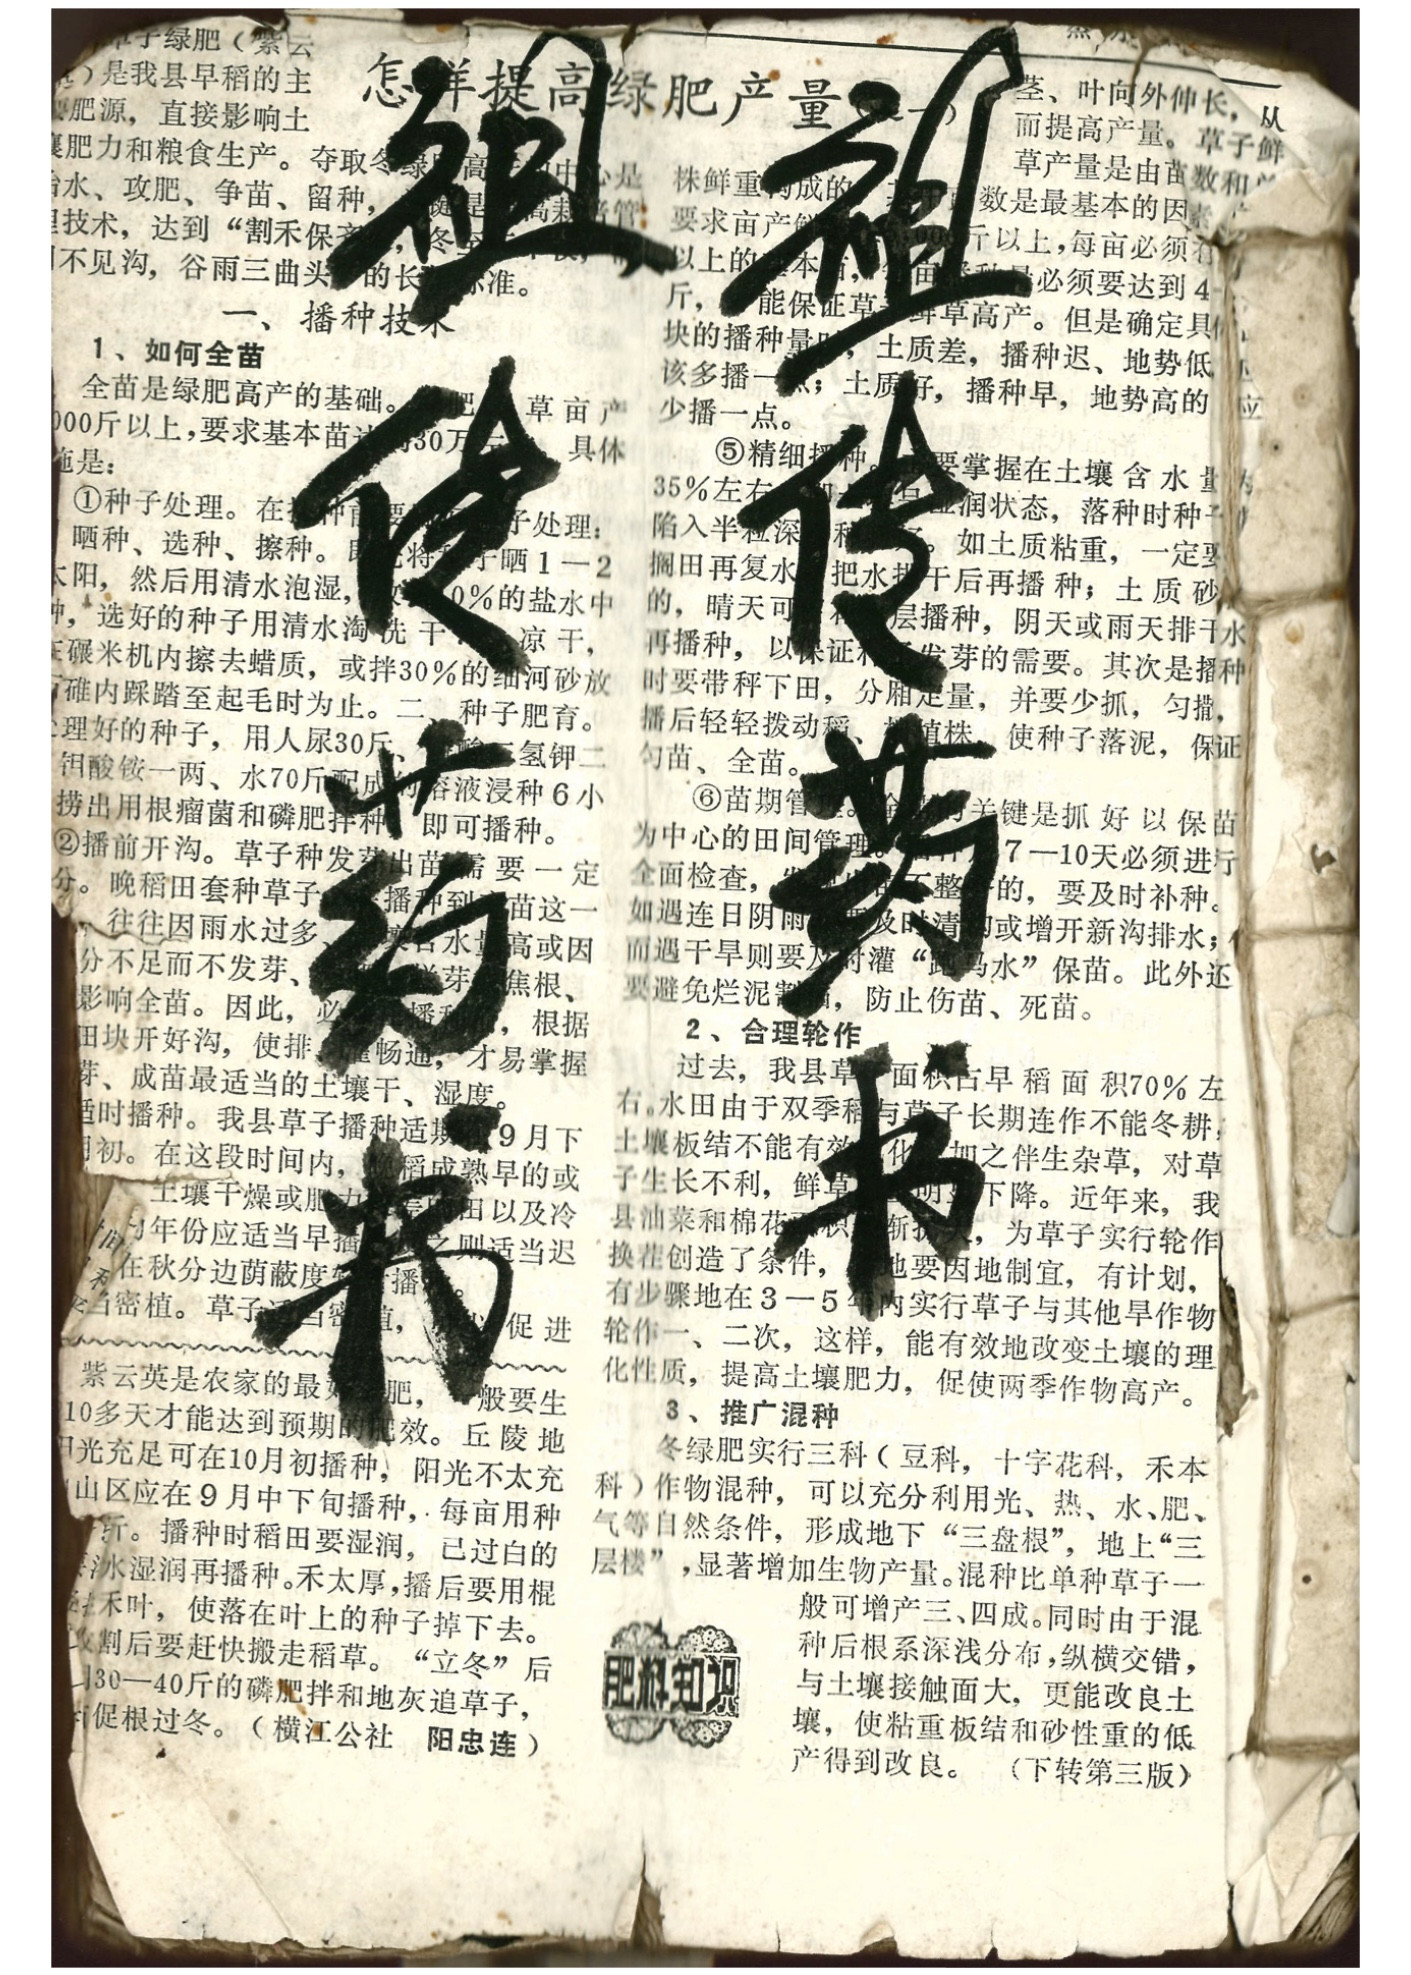 怎样提高绿肥产量
祖传药书
祖传药书
草子绿肥（紫云
）是我县早稻的主
肥源，直接影响土
肥力和粮食生产。夺取冬绿
水、攻肥、争苗、留种，
技术，达到“割禾保
不见沟，谷雨三曲头 的长 标准。
一、播种技术
1、如何全苗
全苗是绿肥高产的基础。 肥 草亩产
000斤以上，要求基本苗达 30万 具体
施是：
①种子处理。在 种前要 子处理：
晒种、选种、擦种。 将 子晒1—2
太阳，然后用清水泡湿， 0%的盐水中
种，选好的种子用清水淘洗干 凉干，
在碾米机内擦去蜡质，或拌30%的细河砂放
碓内踩踏至起毛时为止。二、种子肥育。
理好的种子，用人尿30斤、 酸二氢钾二
钼酸铵一两、水70斤配成 溶液浸种6小
捞出用根瘤菌和磷肥拌种 即可播种。
②播前开沟。草子种发芽出苗需要一定
分。晚稻田套种草子 播种到 苗这一
往往因雨水过多、 水量高或因
分不足而不发芽、 芽 焦根、
影响全苗。因此，必 播种 ，根据
田块开好沟，使排 畅通，才易掌握
芽、成苗最适当的土壤干、湿度。
适时播种。我县草子播种适期 9月下
月初。在这段时间内，晚稻成熟早的或
土壤干燥或肥力 田以及冷
年份应适当早播 则适当迟
在秋分边荫蔽度 播
当密植。草子 当密植， 促进
紫云英是农家的最 肥， 般要生
10多天才能达到预期的肥效。丘陵地
阳光充足可在10月初播种，阳光不太充
山区应在9月中下旬播种，每亩用种
斤。播种时稻田要湿润，已过白的
水湿润再播种。禾太厚，播后要用棍
禾叶，使落在叶上的种子掉下去。
收割后要赶快搬走稻草。“立冬”后
用30—40斤的磷肥拌和地灰追草子，
促根过冬。（横江公社 阳忠连）
茎、叶向外伸长，从
而提高产量。草子鲜
草产量是由苗数和单
株鲜重构成的， 数是最基本的因素
要求亩产 斤以上，每亩必须有
以上的基本苗， 播种量必须要达到4
斤， 能保证草子鲜草高产。但是确定具体
块的播种量时，土质差，播种迟、地势低
该多播一点；土质好，播种早，地势高的 应
少播一点。
⑤精细播种。 要掌握在土壤含水量
35%左右， 湿润状态，落种时种子
陷入半粒深 种 。如土质粘重，一定要
搁田再复水，把水排干后再播种；土质砂
的，晴天可 层播种，阴天或雨天排干水
再播种，以保证种子发芽的需要。其次是播种
时要带秤下田，分厢定量，并要少抓，匀撒，
播后轻轻拨动稻、 植株，使种子落泥，保证
匀苗、全苗。
⑥苗期管理。 关键是抓好以保苗
为中心的田间管理。 7—10天必须进行
全面检查， 不整齐的，要及时补种。
如遇连日阴雨 要及时清沟或增开新沟排水；
而遇干旱则要及时灌“跑马水”保苗。此外还
要避免烂泥割稻，防止伤苗、死苗。
2、合理轮作
过去，我县草子面积占早稻面积70%左
右。水田由于双季稻与草子长期连作不能冬耕，
土壤板结不能有效 化，加之伴生杂草，对草
子生长不利，鲜草 明显下降。近年来，我
县油菜和棉花面积 渐扩大，为草子实行轮作
换茬创造了条件， 地要因地制宜，有计划，
有步骤地在3—5年内实行草子与其他旱作物
轮作一、二次，这样，能有效地改变土壤的理
化性质，提高土壤肥力，促使两季作物高产。
3、推广混种
冬绿肥实行三科（豆科，十字花科，禾本
科）作物混种，可以充分利用光、热、水、肥、
气等自然条件，形成地下“三盘根”，地上“三
层楼”，显著增加生物产量。混种比单种草子一
般可增产三、四成。同时由于混
种后根系深浅分布，纵横交错，
与土壤接触面大，更能改良土
壤，使粘重板结和砂性重的低
产得到改良。（下转第三版）
肥料知识